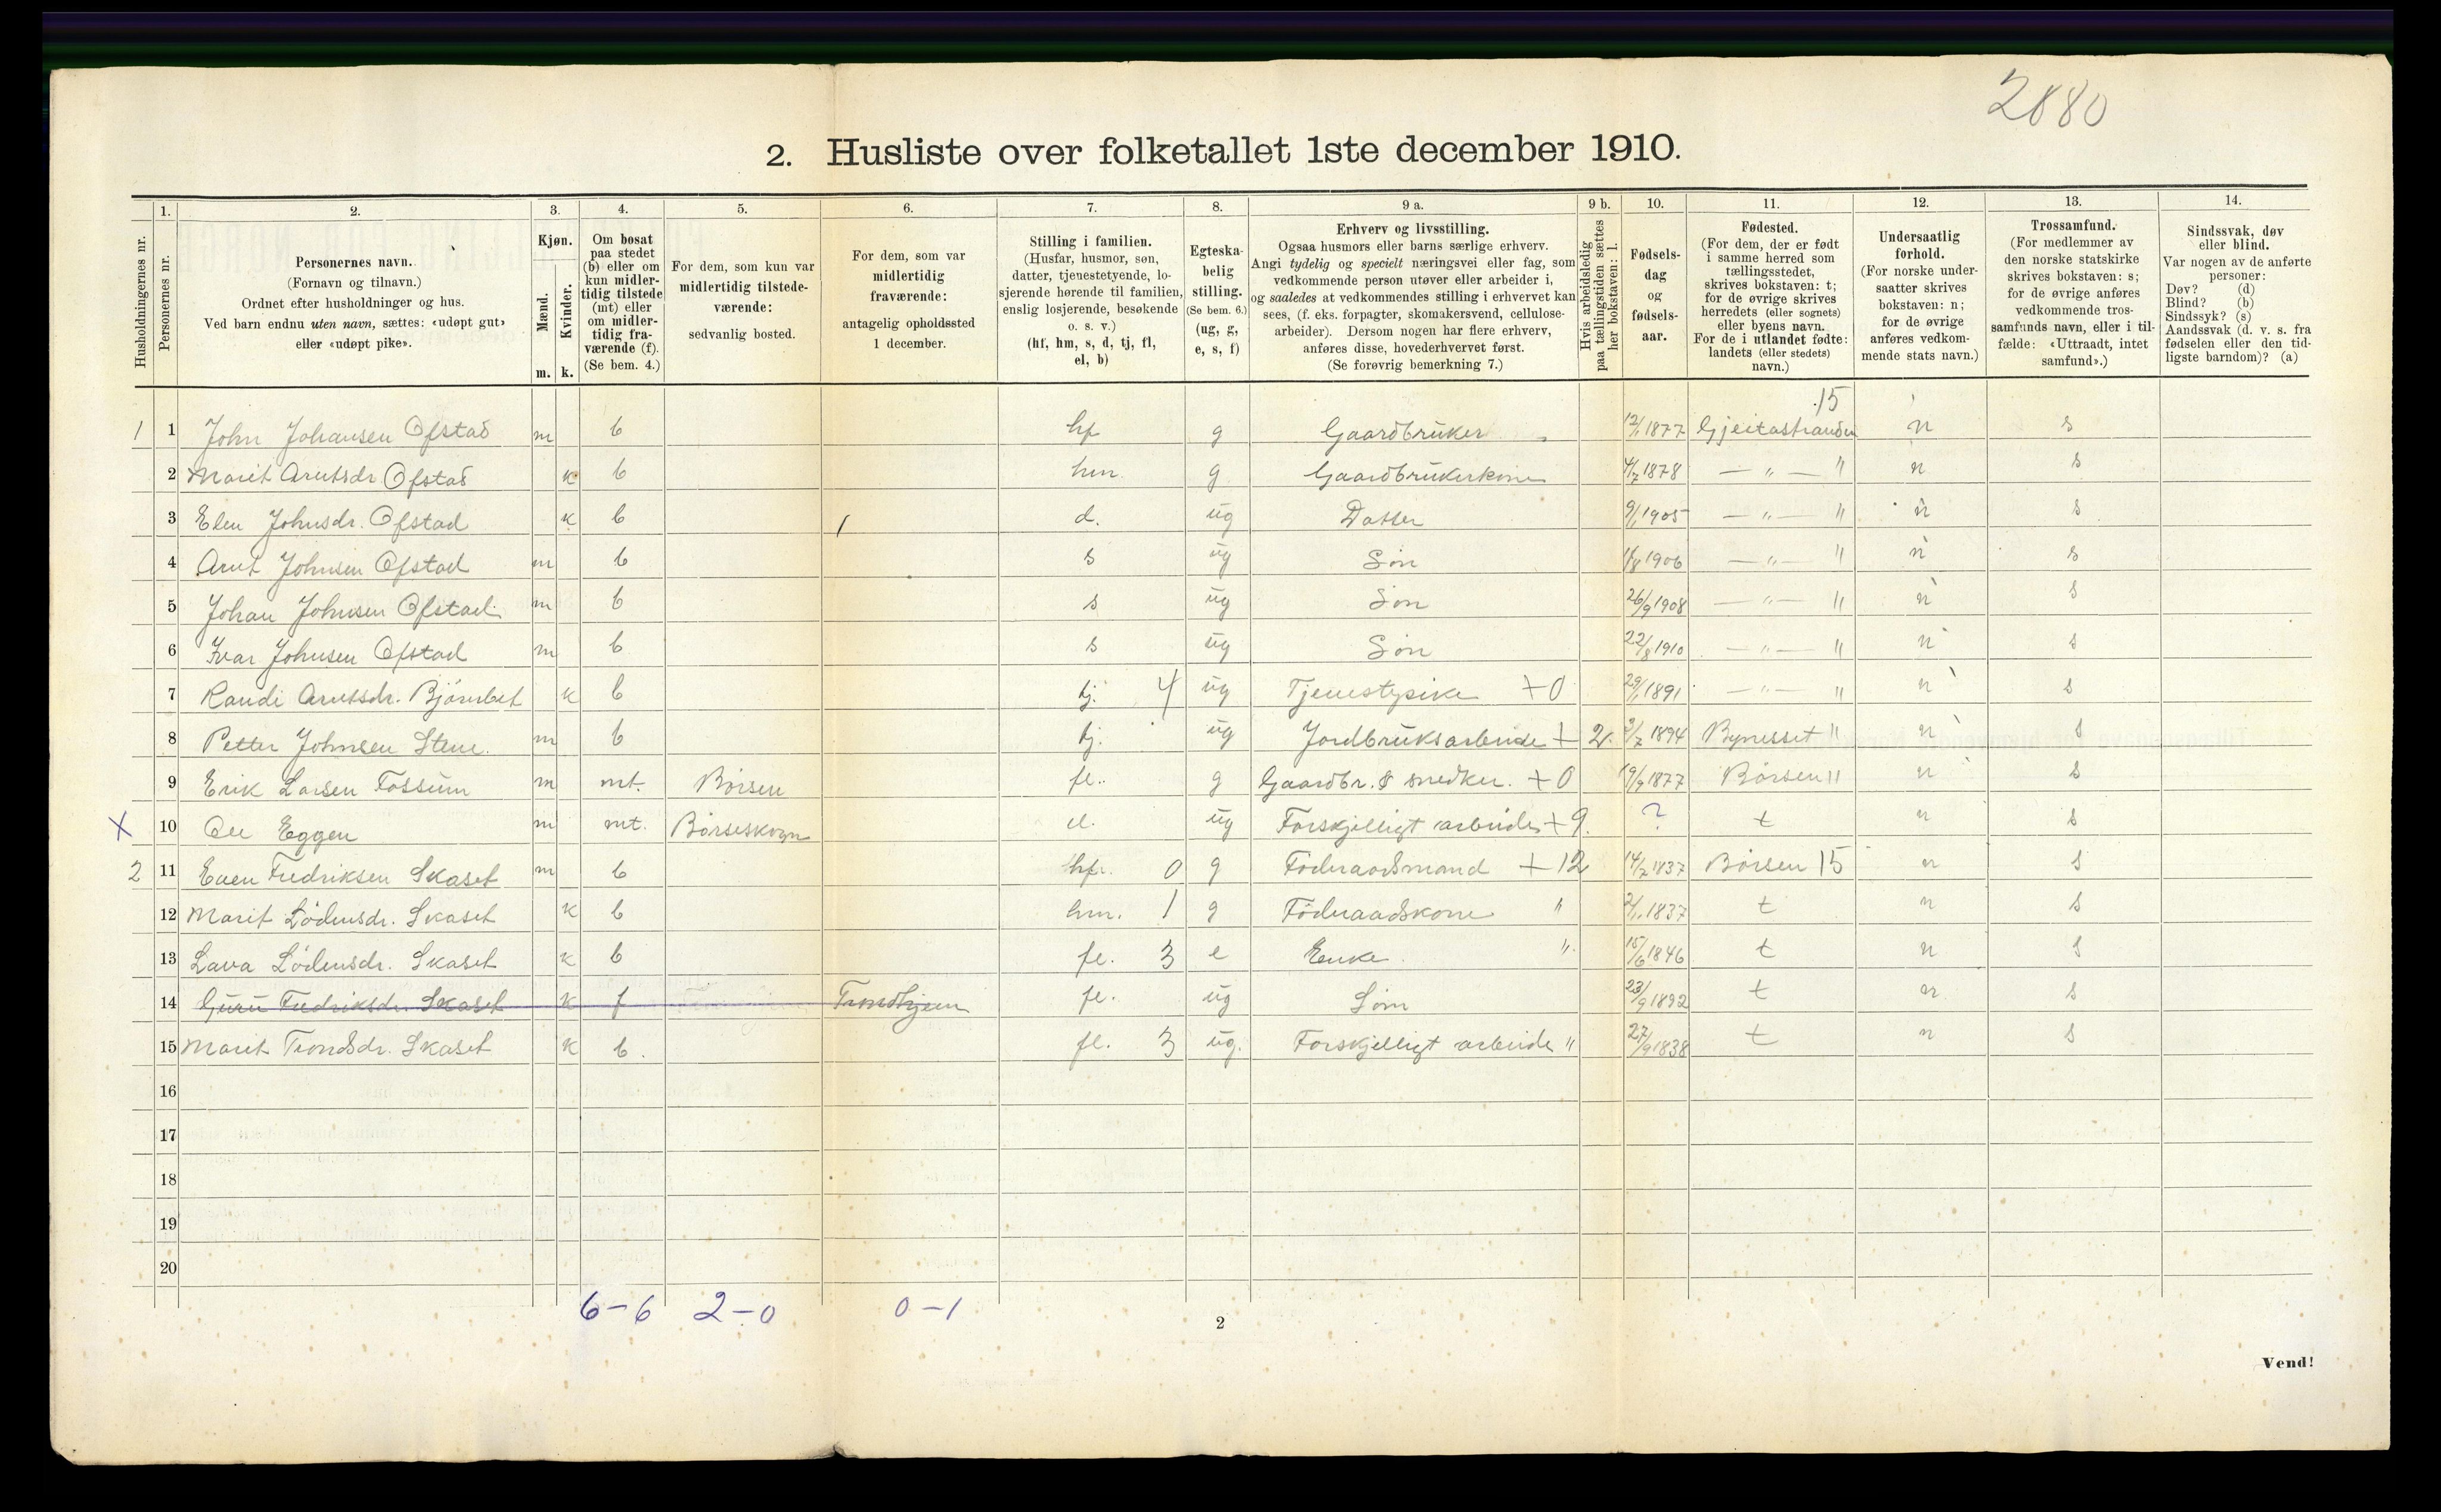 2880
2. Husliste over folketallet 1ste december 1910.
Husholdningernes nr.
1. Personernes nr.
2. Personernes navn.
(Fornavn og tilnavn.)
Ordnet efter husholdninger og hus.
Ved barn endnu uten navn, sættes: «udøpt gut»
eller «udøpt pike».
3. Kjøn.
Mænd. m.
Kvinder. k.
4. Om bosat
paa stedet
(b) eller om
kun midler-
tidig tilstede
(mt) eller
om midler-
tidig fra-
værende (f).
(Se bem. 4.)
5. For dem, som kun var
midlertidig tilstede-
værende:
sedvanlig bosted.
6. For dem, som var
midlertidig
fraværende:
antagelig opholdssted
1 december.
7. Stilling i familien.
(Husfar, husmor, søn,
datter, tjenestetyende, lo-
sjerende hørende til familien,
enslig losjerende, besøkende
o. s. v.)
(hf, hm, s, d, tj, fl,
el, b)
8. Egteska-
belig
stilling.
(Se bem. 6.)
(ug, g,
e, s, f)
9 a. Erhverv og livsstilling.
Ogsaa husmors eller barns særlige erhverv.
Angi tydelig og specielt næringsvei eller fag, som
vedkommende person utøver eller arbeider i,
og saaledes at vedkommendes stilling i erhvervet kan
sees, (f. eks. forpagter, skomakersvend, cellulose-
arbeider). Dersom nogen har flere erhverv,
anføres disse, hovederhvervet først.
(Se forøvrig bemerkning 7.)
9 b. Hvis arbeidsledig
paa tællingstiden sættes
her bokstaven: l.
10. Fødsels-
dag
og
fødsels-
aar.
11. Fødested.
(For dem, der er født
i samme herred som
tællingsstedet,
skrives bokstaven: t;
for de øvrige skrives
herredets (eller sognets)
eller byens navn.
For de i utlandet fødte:
landets (eller stedets)
navn.)
12. Undersaatlig
forhold.
(For norske under-
saatter skrives
bokstaven: n;
for de øvrige
anføres vedkom-
mende stats navn.)
13. Trossamfund.
(For medlemmer av
den norske statskirke
skrives bokstaven: s;
for de øvrige anføres
vedkommende tros-
samfunds navn, eller i til-
fælde: «Uttraadt, intet
samfund».)
14. Sindssvak, døv
eller blind.
Var nogen av de anførte
personer:
Døv? (d)
Blind? (b)
Sindssyk? (s)
Aandssvak (d. v. s. fra
fødselen eller den tid-
ligste barndom)? (a)
15
1 1 John Johansen Ofstad m b hf g Gaardbruker 12/1 1877 Gjeitastranden n s
2 Marit Arntsdr Ofstad k b hm. g Gaardbrukerkone 4/7 1878 — " — " n s
3 Elen Johnsdr. Ofstad k b 1 d. ug Datter 9/1 1905 — " — " n s
4 Arnt Johnsen Ofstad m b s ug Søn 1906 — " — " n s
5 Johan Johnsen Ofstad m b s ug Søn 26/9 1908 — " — " n s
6 Ivar Johnsen Ofstad m b s ug Søn 22/8 1910 — " — " n s
7 Randi Arntsdr. k b tj. 4 ug Tjenestepike + 0 29/1 1891 — " — " n s
8 Petter Johnsen Stene. m b tj. ug Jordbruksarbeide + 2. 1894 Bynesset " n s
9 Erik Larsen Fossum m mt. Børsen fl. g Gaardbr. & snedker. + 0 19/9 1877 Børsen " n s
X 10 Ole Eggen m mt. Børseskogn el. ug Forskjelligt arbeide + 9. ? t n s
2 11 Even Fredriksen Skaset m b hf. 0 g Føderaadsmand + 12 14/7 1837 Børsen 15 n s
12 Marit Lødensdr. Skaset k b hm. 1 g Føderaadskone " 1837 t n s
13 Lava Lødensdr. Skaset k b fl. 3 e Enke " 15/6 1846 t n s
14 Guru Fredriksdr. Skaset k f Trondhjem fl. ug Søm 23/9 1892 t n s
15 Marit Trondsdr. Skaset k b. fl. 3 ug. Forskjelligt arbeide " 27/9 1838 t n s
16
17
18
19
20
6 – 6 2 – 0 0 – 1
2
Vend!